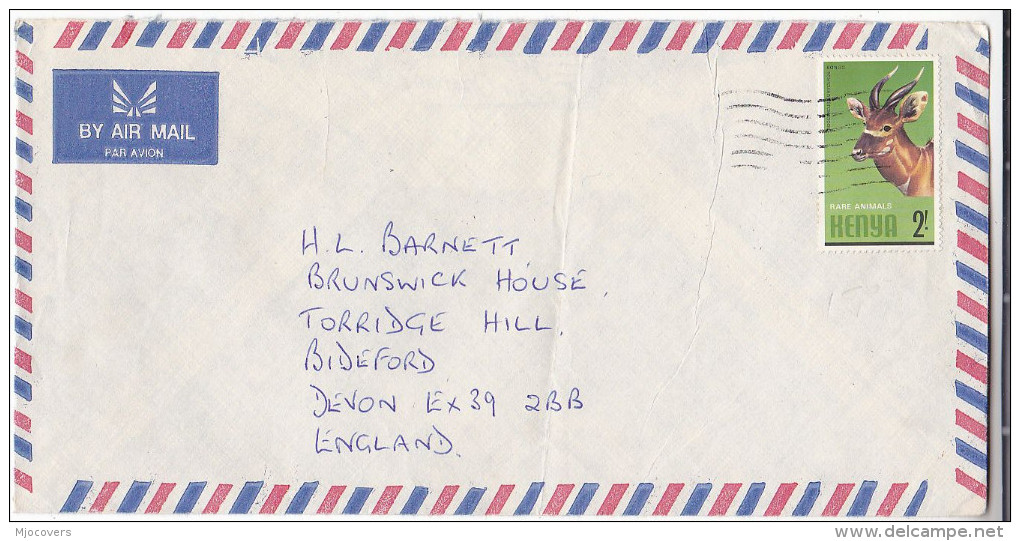 BY AIR MAIL
PAR AVION
BONGO
RARE ANIMALS
KENYA 2/-
H.L. BARNETT
BRUNSWICK HOUSE,
TORRIDGE HILL,
BIDEFORD
DEVON EX39 2BB
ENGLAND.
Mjocovers
delcampe.net